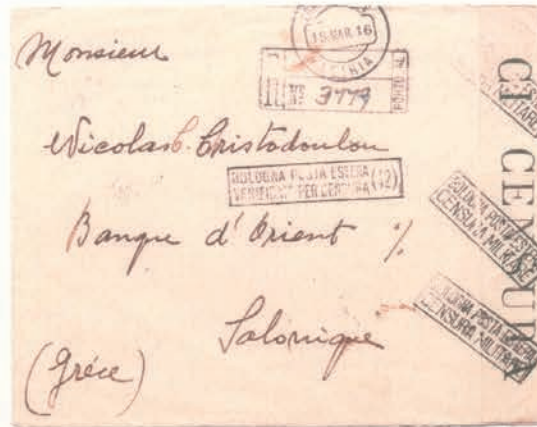 Monsieur
15 MAR. 16
No 3779
PORTO
Nicolas C. Cristodoulou
BOLOGNA POSTA ESTERA
VERIFICATO PER CENSURA (12)
Banque d'Orient %
Salonique
(Gréce)
CENSURA
BOLOGNA POSTA ESTERA
CENSURA MILITARE
BOLOGNA POSTA ESTERA
CENSURA MILITARE